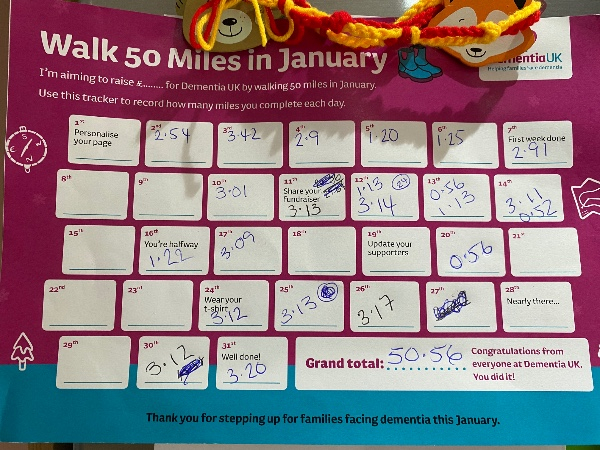 Walk 50 Miles in January
I'm aiming to raise £......... for Dementia UK by walking 50 miles in January.
Use this tracker to record how many miles you complete each day.
mentiaUK
Helping families face dementia
1st
Personalise
your page
2nd
2.54
3rd
3.42
4th
2.9
5th
1.20
6th
1.25
7th
First week done
2.91
8th
9th
10th
3.01
11th
Share your
fundraiser
3.13
12th
1.13
3.14
13th
0.56
1.13
14th
3.11
0.52
15th
16th
You're halfway
1.22
17th
3.09
18th
19th
Update your
supporters
20th
0.56
21st
22nd
23rd
24th
Wear your
t-shirt
3.12
25th
3.13
26th
3.17
27th
28th
Nearly there...
29th
30th
3.12
31st
Well done!
3.20
Grand total: 50.56
Congratulations from
everyone at Dementia UK.
You did it!
Thank you for stepping up for families facing dementia this January.